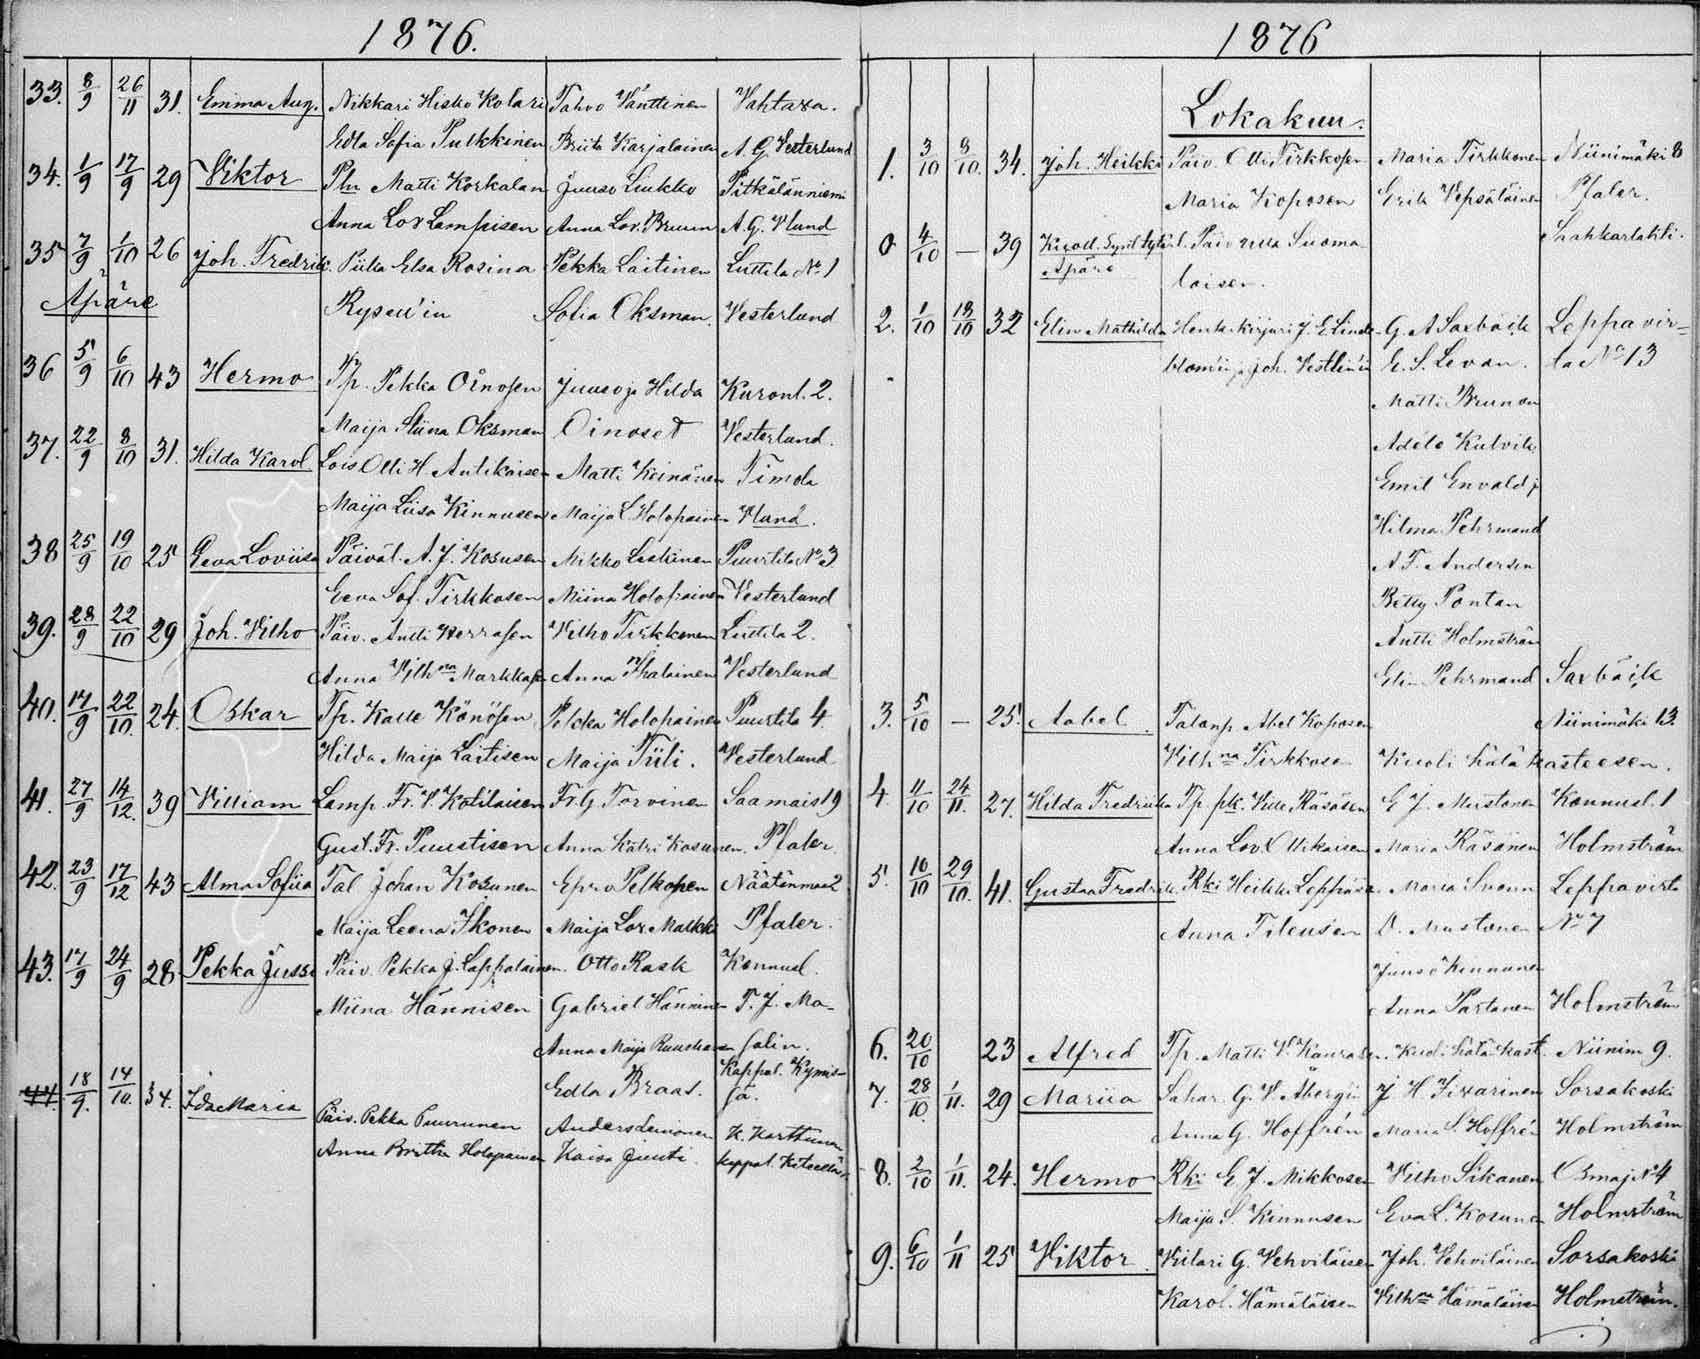 1876.
33. 8/9 26/11 31. Emma Aug. Nikkari Hisko Kolari Tahvo Vänttinen Vahtaxa.
Edla Sofia Pulkkinen Briita Karjalainen A. G. Vesterlund
34. 1/9 17/9 29 Viktor Matti Korkalan Juuso Liukko Pitkälänniemi
Anna Lov Lampisen Anna Lov. Bruun A. G. Vlund
35 7/9 1/10 26 Joh. Fredrik. Piika Elsa Rosina Pekka Laitinen Luttila No 1
Apäre Rysen'in Sofia Oksman. Vesterlund
36 5/9 6/10 43 Hermo Tp. Pekka Oinosen Juuso ja Hilda Kuronl. 2.
Maija Stiina Oksman Oinoset Vesterlund.
37. 22/9 8/10 31. Hilda Karol. Lois Olli H. Antikaisen Matti Keinänen Timola
Maija Liisa Kinnusen Maija L. Holopainen Vlund.
38 25/9 19/10 25 Eeva Loviisa Päiväl. A. J. Kosusen Mikko Leskinen Puurtila No 3
Eeva Sof. Tirkkosen Miina Holopainen Vesterlund
39. 28/9 22/10 29 Joh. Vilho Päiv. Antti Vilho Tirkkonen Luttila 2.
Anna Vilhna Markka Anna Ihalainen Vesterlund
40. 17/9 22/10. 24. Oskar Tp. Kalle Könösen Pekka Holopainen Puurtila 4.
Hilda Maija Laitisen Maija Tiili. Vesterlund
41. 27/9 14/12. 39 Villiam Lamp. Fr. V. Kotilaisen Fr. G. Torvinen Saamais 19
Gust. Fr. Puustisen Anna Katri Kosunen. Pfaler.
42. 23/9 17/12 43 Alma Sofiia Tal Johan Kosunen Epro Pelkosen Näätänmaa 2
Maija Leena Ikonen Maija Lov. Malkki Pfaler.
43. 17/9 24/9 28 Pekka Jussi Päiv. Pekka J. Lappalainen. Otto Rask Konnusl.
Miina Hännisen Gabriel Hänninen T. J. Mo-
Anna Maija Ruuskanen salin.
Kappal. Kymis-
44. 18/9. 14/10. 34. Ida Maria Edla Braas. sä.
Päis. Pekka Puurunen Anders K. Karttunen
Anna Britha Holopainen Kaisa Juuti.
1876
Lokakuu.
1. 3/10 8/10. 34. Joh. Heikki Päiv. Olli Tirkkosen Maria Tirkkonen Niinimäki 8
Maria Koposen Erik Vepsäläinen Pfaler.
0 4/10 — 39 Päiv Ulla Suoma
Apäre laisen.
2. 1/10 13/10 32 Elin Mathilda Henkikirjuri J. E. Linde- G. A Saxbäck Leppävir=
blom'in ja Joh. Vestlin'in E. S. Levan. ta No 13
Matti Brunou
Adéle Kulvik
Emil Envald ja
Hilma Pehrmand
A. F. Andersin
Betty Pontan
Antti Holmström
Elin Pehrmand Saxbäck
3. 5/10 — 25. Aabel Talonp. Abel Koposen Niinimäki 13.
Vilhna Tirkkosen Kuoli hätäkasteesen.
4. 11/10 24/11. 27. Hilda Fredriika Tp. pk. Ville Räsäsen E J. Mustonen Konnusl. 1
Anna Lov. Ollikaisen Maria Räsänen Holmström
5. 10/10 29/10. 41. Gustaa Fredrik Rki Heikki Leppäsen Maria Svann Leppävirta
Anna Tileusen O. Mustonen No 7
Juuso Kinnunen
Anna Partanen Holmström
6. 20/10 23 Alfred Tp. Matti V. Kaurasen. Kuoli hätäkast. Niinim 9.
7. 28/10 1/11. 29 Mariia Sahar. G. V. Åbergin J. H. Sivarinen Sorsakoski
Anna G. Hoffrén Maria S. Hoffrén Holmström
8. 2/10 1/11. 24. Hermo Rki E J. Mikkosen Vilho Sikanen Osmaj. No 4
Maija S. Kinnusen Eva L. Kosunen Holmström
9. 6/10 1/11 25 Viktor Viilari G. Vehviläisen Joh. Vehviläinen Sorsakoski
Karol. Hämäläisen Vilhna Hämäläinen Holmström.